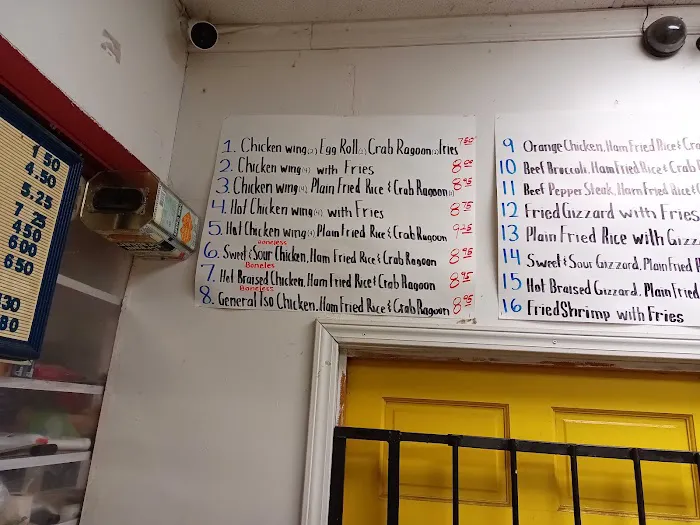 1 50
4.50
5.25
7 25
4 50
6 00
6 50
130
80
1. Chicken wing(2) Egg Roll(1) Crab Ragoon(2) Fries 7.50
2. Chicken wing(4) with Fries 8.00
3. Chicken wing(4), Plain Fried Rice & Crab Ragoon 8.95
4. Hot Chicken wing(4) with Fries 8.75
5. Hot Chicken wing(4) Plain Fried Rice & Crab Ragoon 9.25
Boneless
6. Sweet & Sour Chicken, Ham Fried Rice & Crab Ragoon 8.95
Boneles
7. Hot Braised Chicken, Ham Fried Rice & Crab Ragoon 8.95
Boneless
8. General Tso Chicken, Ham Fried Rice & Crab Ragoon 8.95
9 Orange Chicken, Ham Fried Rice & Cra
10 Beef Broccoli, Ham Fried Rice & Crab
11 Beef Pepper Steak, Ham Fried Rice &
12 Fried Gizzard with Fries
13 Plain Fried Rice with Gizz
14 Sweet & Sour Gizzard, Plain Fried R
15 Hot Braised Gizzard, Plain Fried
16 Fried Shrimp with Fries